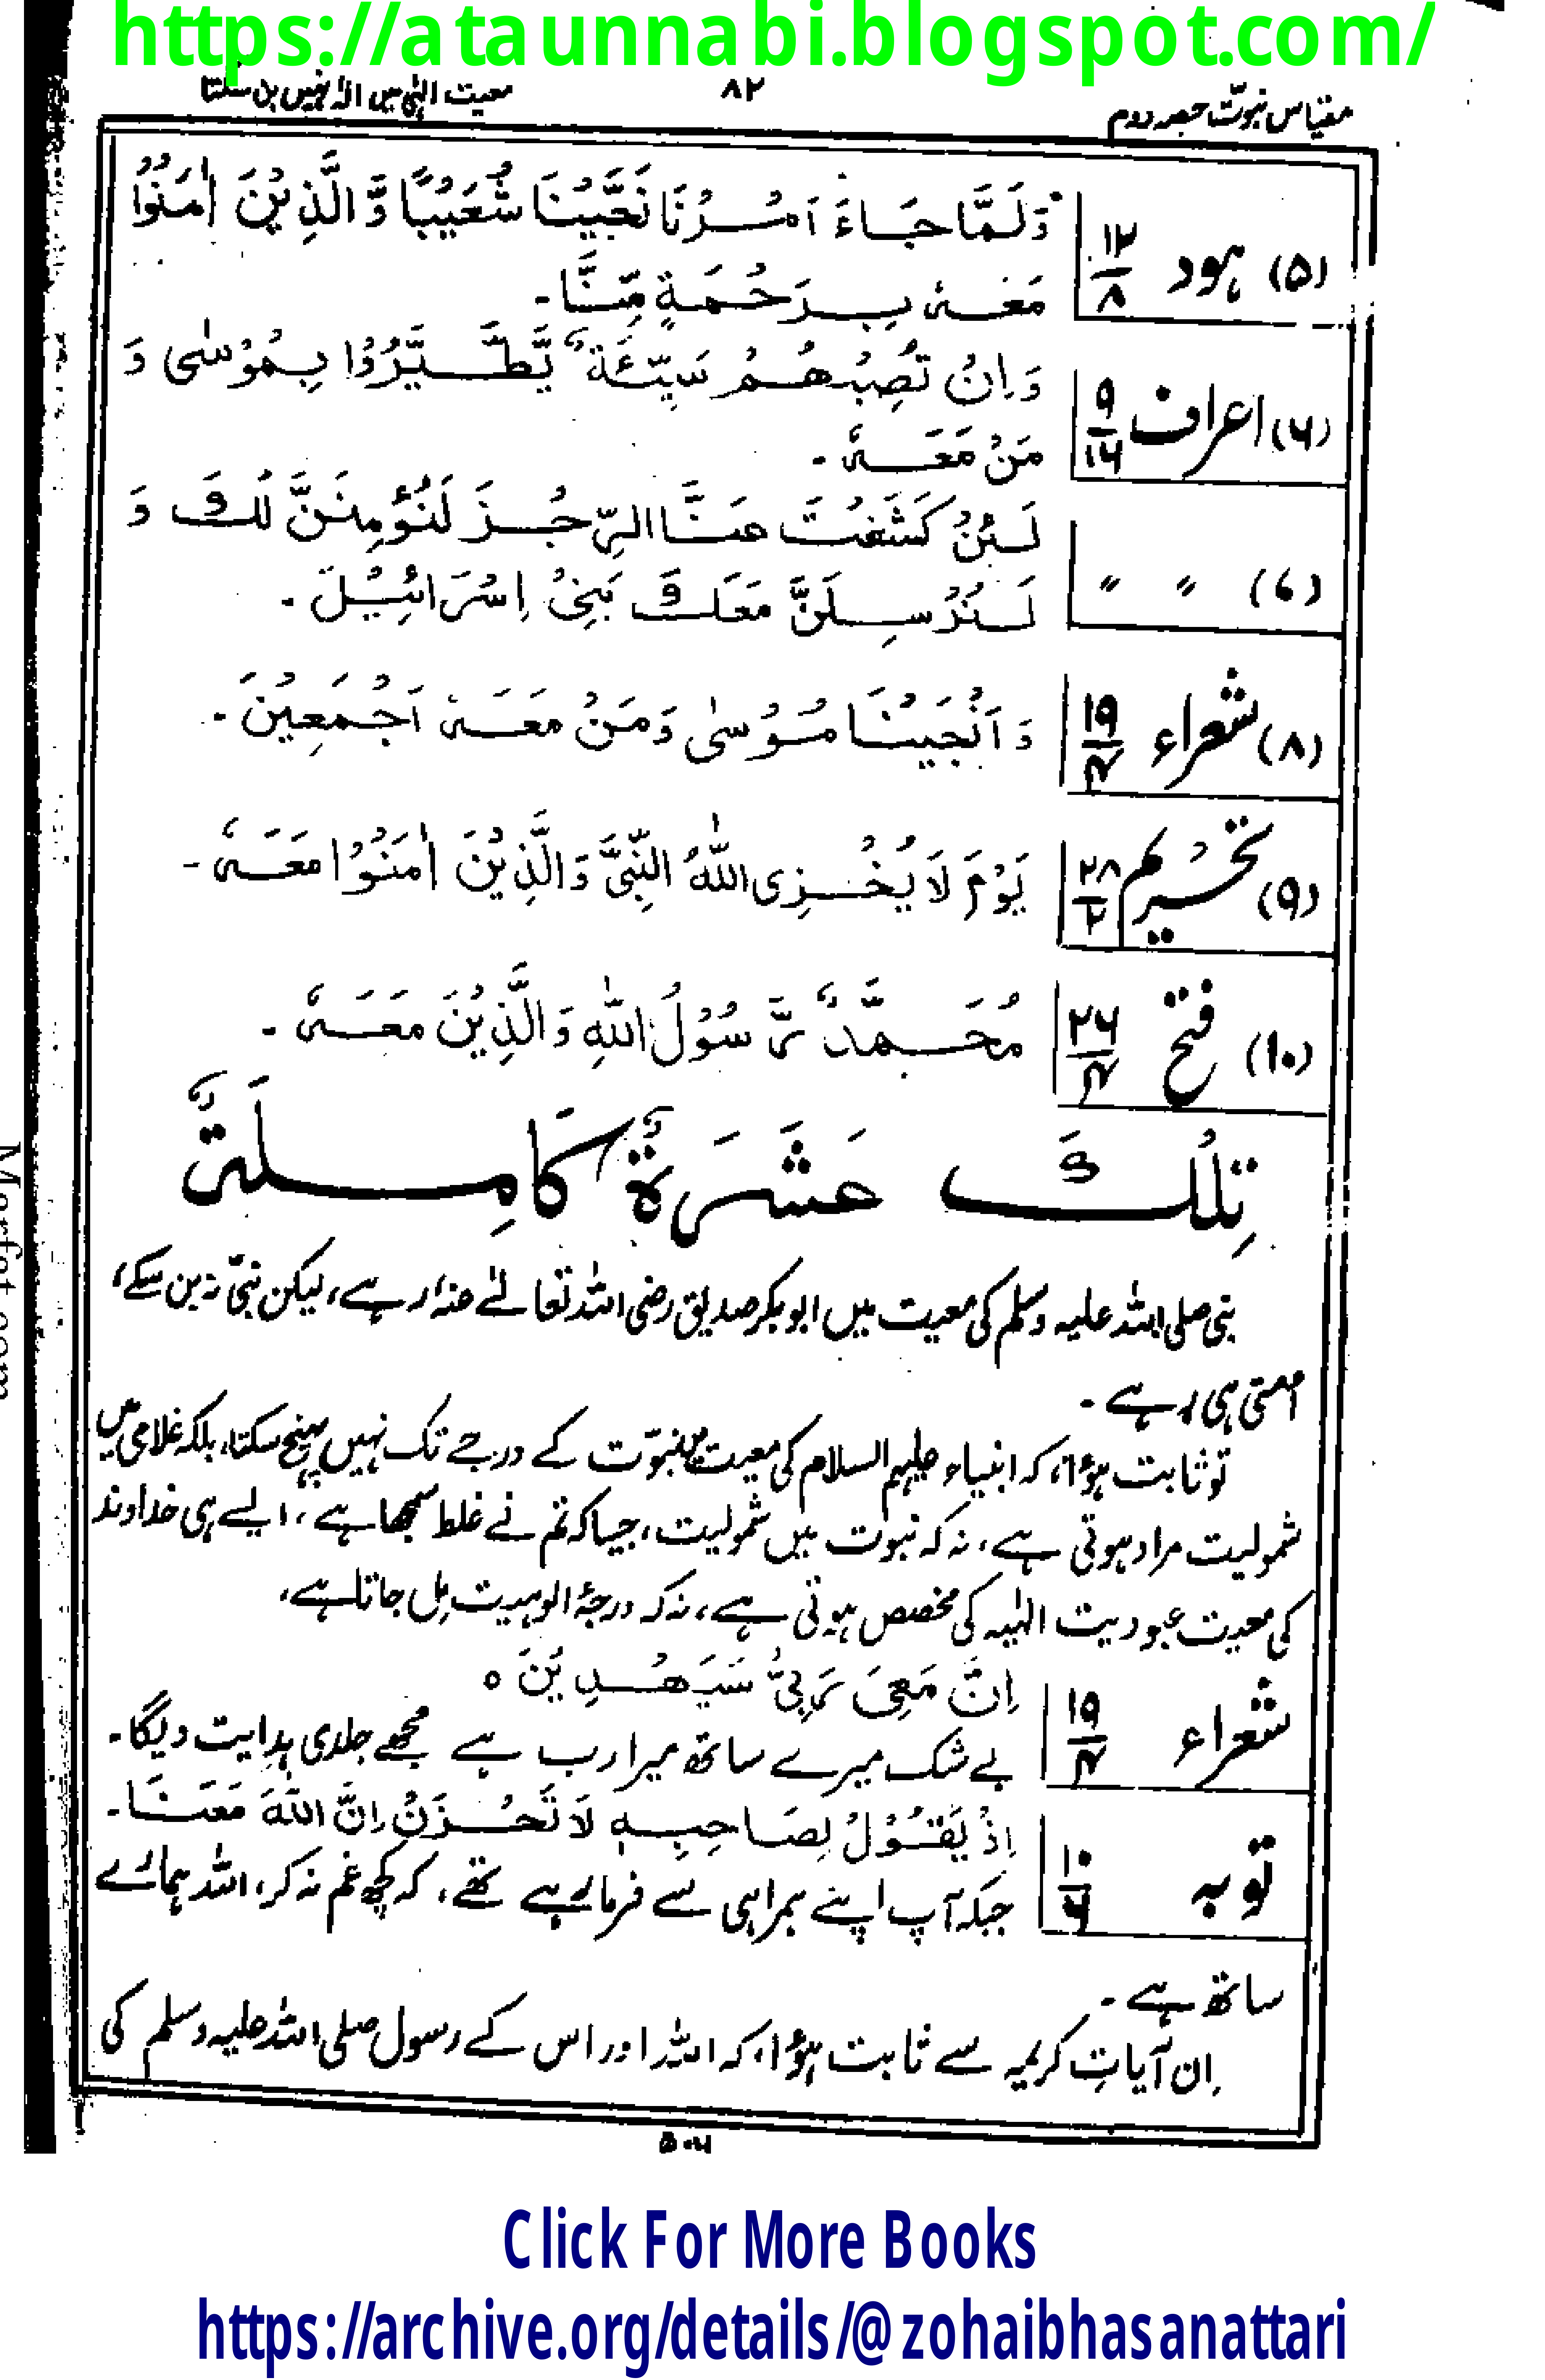 https://ataunnabi.blogspot.com/
مقیاس نبوّت حصہ دوم
۸۲
معیت الٰہی میں الٰہ نہیں بن سکتا
(۵) ہود ۱۲/۸
وَلَمَّا جَاءَ اَمْرُنَا نَجَّيْنَا شُعَيْبًا وَّ الَّذِيْنَ اٰمَنُوْا
مَعَهٗ بِرَحْمَةٍ مِّنَّا۔
(۶) اعراف ۹/۱۶
وَ اِنْ تُصِبْهُمْ سَيِّئَةٌ يَّطَّيَّرُوْا بِمُوْسٰى وَ
مَنْ مَعَهٗ۔
(۷) ״ ״
لَئِنْ كَشَفْتَ عَنَّا الرِّجْزَ لَنُؤْمِنَنَّ لَكَ وَ
لَنُرْسِلَنَّ مَعَكَ بَنِيْ اِسْرَائِيْلَ۔
(۸) شعراء ۱۹/۴
وَ اَنْجَيْنَا مُوْسٰى وَ مَنْ مَعَهٗ اَجْمَعِيْنَ۔
(۹) تحریم ۲۸/۲
يَوْمَ لَا يُخْزِى اللّٰهُ النَّبِيَّ وَ الَّذِيْنَ اٰمَنُوْا مَعَهٗ۔
(۱۰) فتح ۲۶/۴
مُحَمَّدٌ رَّسُوْلُ اللّٰهِ وَ الَّذِيْنَ مَعَهٗ۔
تِلْكَ عَشَرَةٌ كَامِلَةٌ
نبی صلی اللہ علیہ وسلم کی معیت میں ابوبکر صدیق رضی اللہ تعالےٰ عنہٗ رہے، لیکن نبیّ نہ بن سکے،
اُمتی ہی رہے۔
تو ثابت ہوُا، کہ انبیاء علیہم السلام کی معیت میں نبوّت کے درجے تک نہیں پہنچ سکتا، بلکہ غلامی میں
شمولیت مراد ہوتی ہے، نہ کہ نبوت میں شمولیت، جیسا کہ تم نے غلط سمجھا ہے، ایسے ہی خداوند
کی معیت عبودیت الٰہیہ کی مخصص ہوتی ہے، نہ کہ درجۂ الوہیت مِل جاتا ہے،
شعراء ۱۹/۴
اِنَّ مَعِىَ رَبِّىْ سَيَهْدِيْنَ ٥
بے شک میرے ساتھ میرا رب ہے مجھے جلدی ہدایت دیگا۔
توبہ ۱۰/۶
اِذْ يَقُوْلُ لِصَاحِبِهٖ لَا تَحْزَنْ اِنَّ اللّٰهَ مَعَنَا۔
جبکہ آپ اپنے ہمراہی سے فرما رہے تھے، کہ کچھ غم نہ کر، اللہ ہمارے
ساتھ ہے۔
اِن آیاتِ کریمہ سے ثابت ہوُا، کہ اللہ اور اس کے رسول صلی اللہ علیہ وسلم کی
۵۰۶
Marfat.com
Click For More Books
https://archive.org/details/@zohaibhasanattari